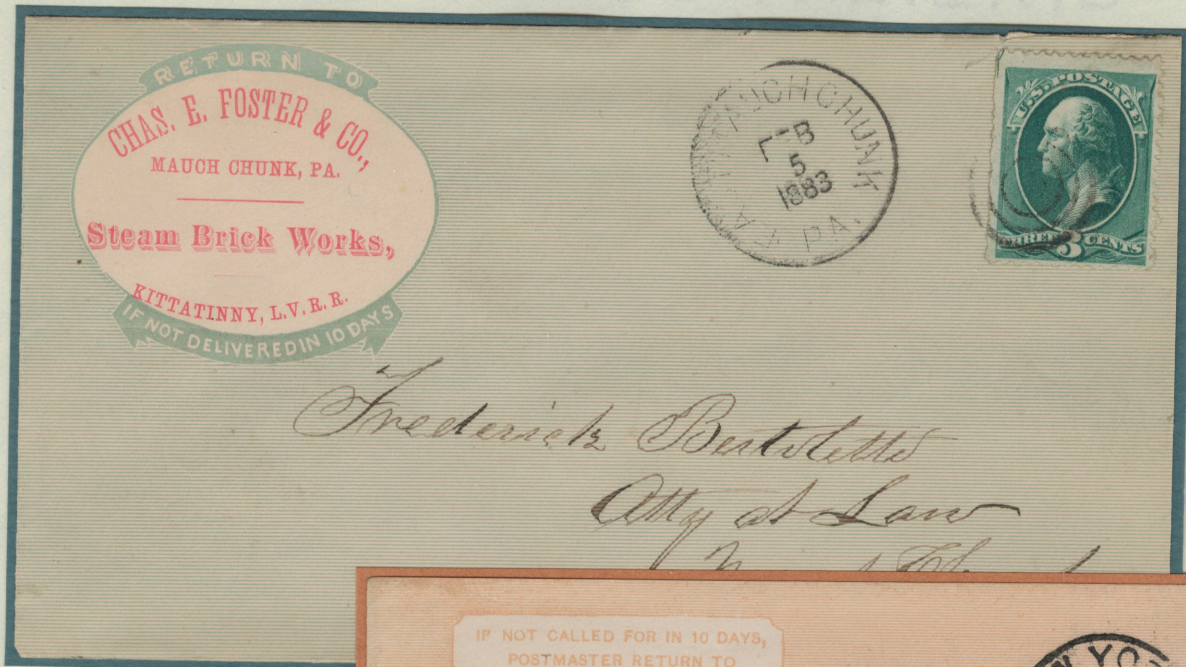 RETURN TO
CHAS. E. FOSTER & CO.,
MAUCH CHUNK, PA.
Steam Brick Works,
KITTATINNY, L.V.R.R.
IF NOT DELIVERED IN 10 DAYS
MAUCH CHUNK
FEB
5
1883
PA.
U.S. POSTAGE
THREE 3 CENTS
Frederick Bertolette
Atty at Law
IF NOT CALLED FOR IN 10 DAYS,
POSTMASTER RETURN TO